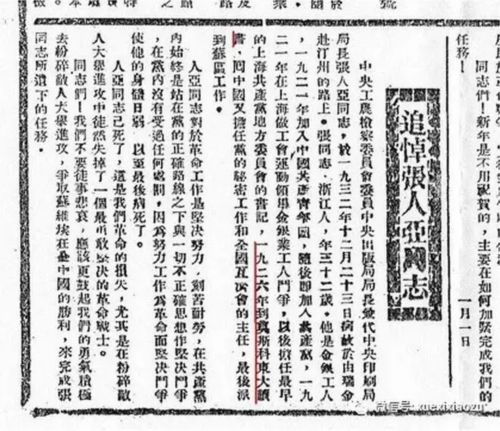 同志們！新年是不用祝賀的，主要在如何加緊完成我們的
任務！
一月一日
追悼張人亞同志
中央工農檢察委員會委員中央出版局局長兼代中央印刷局
局長張人亞同志，於一九三二年十二月二十三日病故於由瑞金
赴汀州的路上。張同志，浙江人，年三十二歲。他是金銀工人
，一九二一年加入中國共產青年團，隨後即加入共產黨，一九
二一年在上海做工會運動領導金銀業工人鬥爭，以後擔任最早
的上海共產黨地方委員會的書記，一九二六年到莫斯科東大讀
書，回中國又擔任黨的秘密工作和全國互濟會的主任，最後派
到蘇區工作。
人亞同志對於革命工作是堅決努力，刻苦耐勞，在共產黨
內始終是站在黨的正確路線之下與一切不正確思想作堅決鬥爭
，在黨內沒有受過任何處罰，因為努力工作為革命而堅決鬥爭
使他的身體日弱，以至最後病死了。
人亞同志已死了，這是我們革命的損失，尤其是在粉碎敵
人大舉進攻中徒然失掉了一個最勇敢堅決的革命戰士。
同志們！我們不要徒事悲哀，應該更鼓起我們的勇氣積極
去粉碎敵人大舉進攻，爭取蘇維埃在全中國的勝利，來完成張
同志所遺下的任務。
微信号: xuexixiaozu